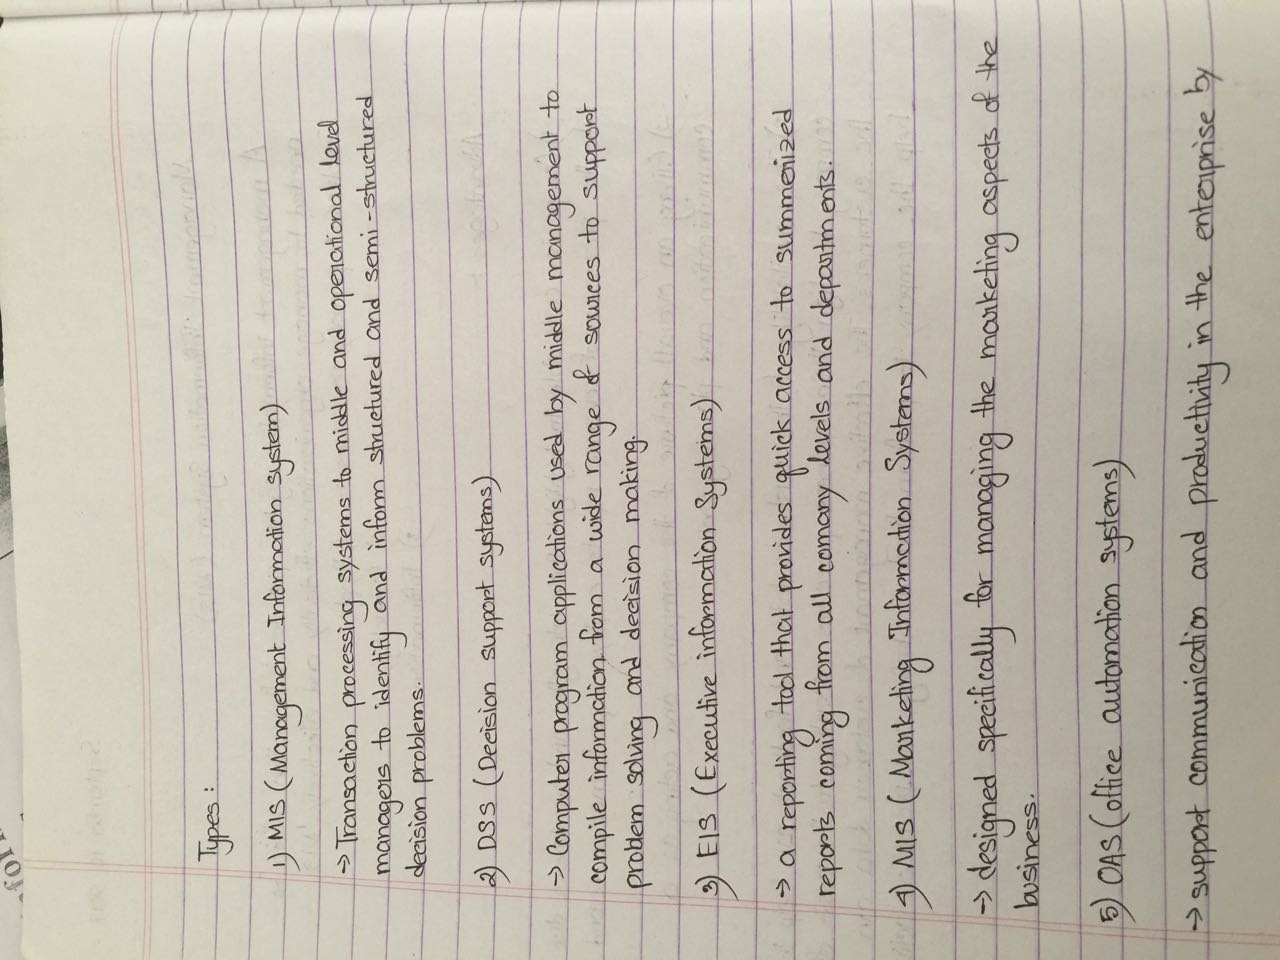 Types :
1) MIS (Management Information system)
→ Transaction processing systems to middle and operational level
managers to identify and inform structured and semi-structured
decision problems.
2) DSS (Decision support systems)
→ Computer program applications used by middle management to
compile information from a wide range of sources to support
problem solving and decision making.
3) EIS (Executive information Systems)
→ a reporting tool that provides quick access to summerized
reports coming from all comany levels and departments.
4) MIS (Marketing Information Systems)
→ designed specifically for managing the marketing aspects of the
business.
5) OAS (office automation systems)
→ support communication and productivity in the enterprise by